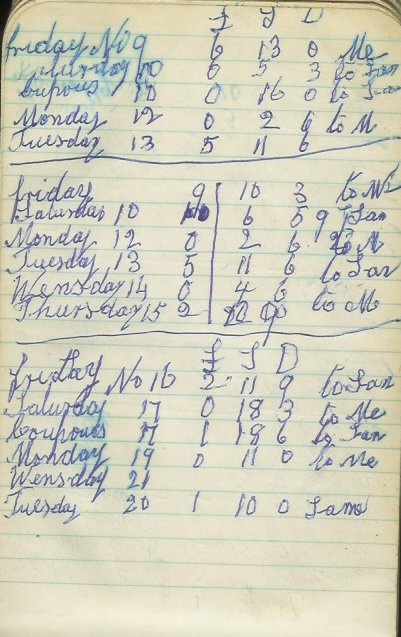 £ S D
friday No 9 6 13 0 Me
Saturday 10 6 5 3 to Sam
Coupous 10 0 16 0 to Sam
Monday 12 0 2 6 to M
Tuesday 13 5 11 6
friday 9 10 3 to M
Saturday 10 6 5 9 Sam
Monday 12 0 2 6 to M
Tuesday 13 5 11 6 to Sam
Wensday 14 0 4 6
Thursday 15 2 to M
£ S D
friday No 16 2 11 9 to Sam
Saturday 17 0 18 3 to Me
Coupous 17 1 19 6 to Sam
Monday 19 0 11 0 to Me
Wensday 21
Tuesday 20 1 10 0 Sam